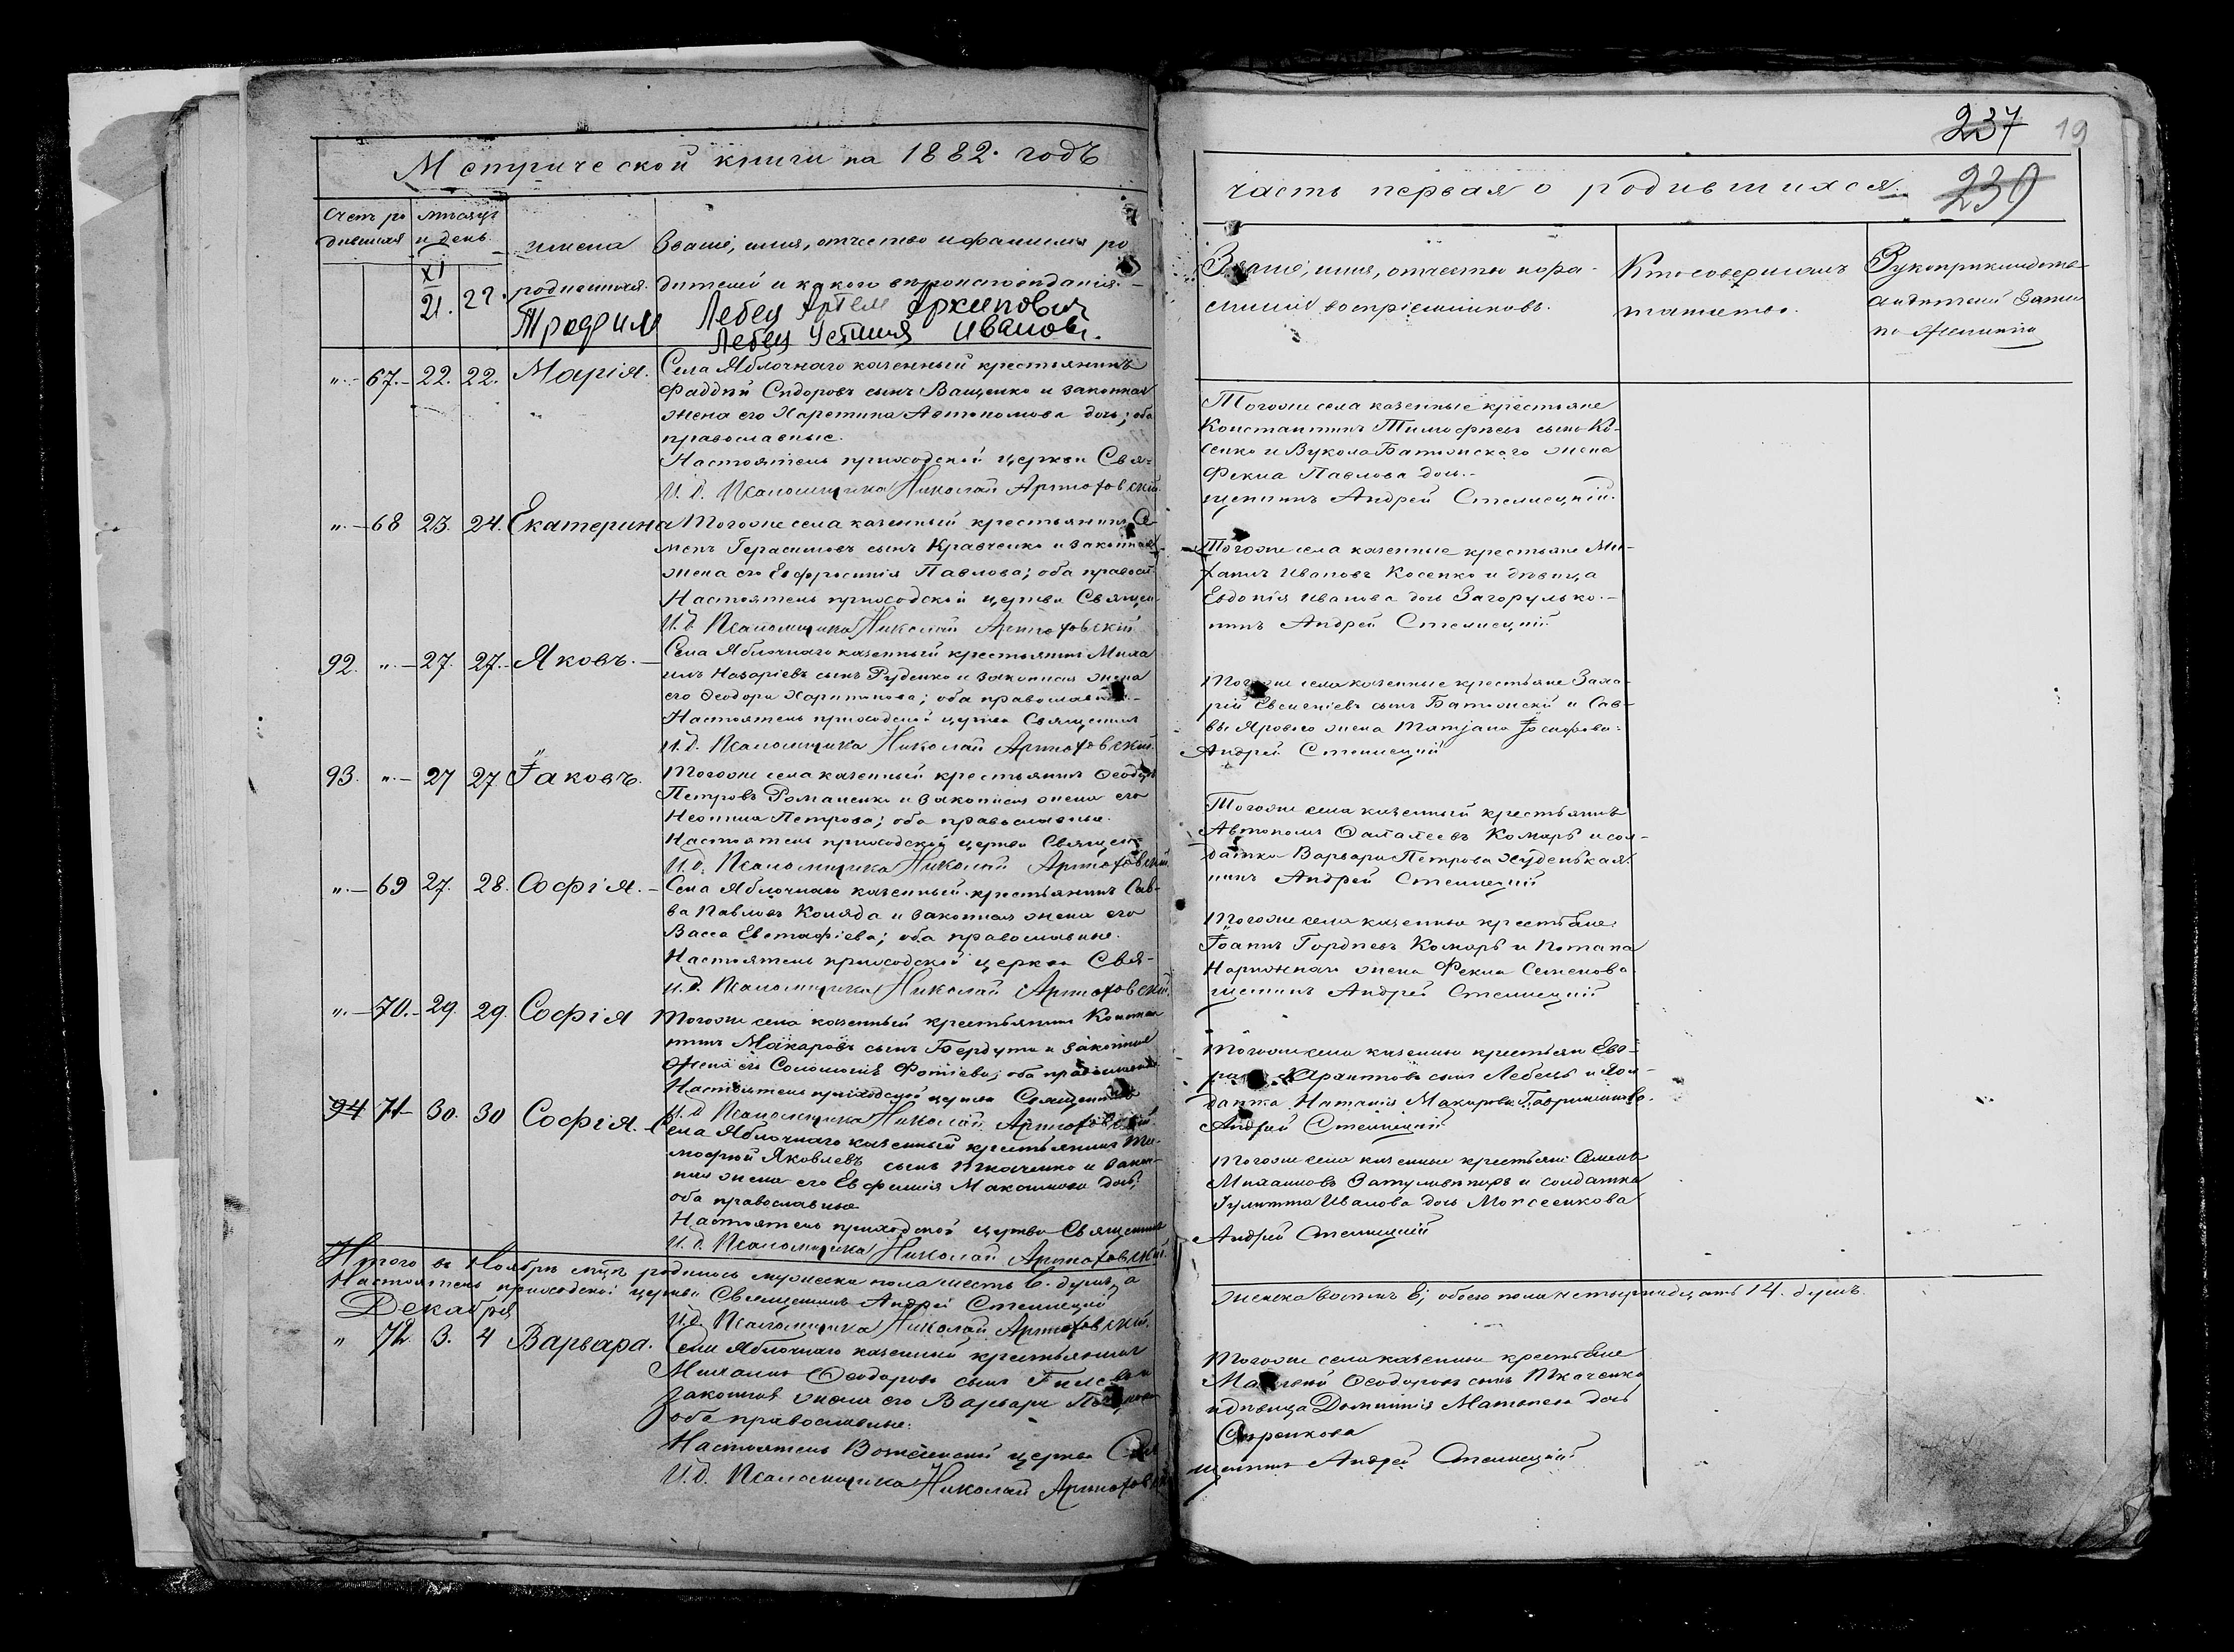 237 19
Метрической книги на 1882. годъ
часть первая о родившихся. 239
Счетъ ро
дившихся
мѣсяцъ
и день
имена
родившихся.
Званіе, имя, отчество и фамилія ро
дителей и какого вѣроисповѣданія.
Званіе, имя, отчество и фа-
милія воспріемниковъ.
Кто совершалъ
таинство.
Рукоприкладство
свидѣтелей записи
по желанію
XI
21. 22. Трофим Лебец Артем Архипович
Лебец Устиния Иванов.
".- 67.- 22. 22. Марія. Села Яблочнаго казенный крестьянинъ
Фаддѣй Сидоровъ сынъ Ващенко и законная
жена его Харетина Автономова дочь; оба
православные.
Настоятель приходской церкви Свя-
И. д. Псаломщика Николай Артюховскій.
Тогоже села казенные крестьяне
Константинъ Тимофѣевъ сынъ Ко-
сенко и Вукола Батюнскаго жена
Фекла Павлова дочь.-
щенникъ Андрей Стеллецкій.
".- 68 23. 24. Екатерина Тогоже села казенный крестьянинъ Се
менъ Герасимовъ сынъ Кравченко и законная
жена его Евфросинія Павлова; оба правосл.
Настоятель приходской церкви Священ-
И. д. Псаломщика Николай Артюховскій
Тогоже села казенные крестьяне Ми-
хаилъ Ивановъ Косенко и дѣвица
Евдокія Иванова дочь Загорулько.-
никъ Андрей Стеллецкій
92. ".- 27. 27.- Яковъ.- Села Яблочнаго казенный крестьянинъ Миха
илъ Назаріевъ сынъ Руденко и законная жена
его Ѳеодора Харитонова; оба православные.-
Настоятель приходской церкви Священникъ
И. д. Псаломщика Николай Артюховскій.
Тогоже села казенные крестьяне Заха-
рій Евсеніевъ сынъ Батюнскій и Сав-
вы Яроваго жена Татіана Іосифова.
Андрей Стеллецкій
93. ".- 27 27 Іаковъ. Тогоже села казенный крестьянинъ Ѳеодоръ
Петровъ Романенко и законная жена его
Неонила Петрова; оба православные.
Настоятель приходской церкви Священ-
И. д. Псаломщика Николай Артюховскій
Тогоже села казенный крестьянинъ
Автономъ Комаръ и сол-
датка Варвара Петрова Худенькая.
никъ Андрей Стеллецкій
".- 69 27. 28. Софія.- Села Яблочнаго казенный крестьянинъ Сав-
ва Павловъ Коляда и законная жена его
Васса Евстафіева; оба православные.
Настоятель приходской церкви Свя-
И. д. Псаломщика Николай Артюховскій.
Тогоже села казенные крестьяне
Іоаннъ Гордѣевъ Комаръ и Потапа
Нарожнаго жена Фекла Семенова
щенникъ Андрей Стеллецкій
".- 70.- 29. 29. Софія Тогоже села казенный крестьянинъ Констан
тинъ Макаровъ сынъ Бердута и законная
жена его Соломонія Фотіева; оба православные
Настоятель приходской церкви Священникъ
И. д. Псаломщика Николай Артюховскій
Тогоже села казенные крестьяне Ев-
сынъ Лебецъ и сол-
датка Наталія Макарова
Андрей Стеллецкій
94 71- 30. 30 Софія.- Села Яблочнаго казенный крестьянинъ Ти-
мофей Яковлевъ сынъ Ткаченко и закон-
ная жена его Евфимія Максимова дочь;
оба православные
Настоятель приходской церкви Священникъ
И. д. Псаломщика Николай Артюховскій.
Тогоже села казенные крестьяне Семенъ
Михаиловъ и солдатка
Іулитта Иванова дочь Моисеенкова
Андрей Стеллецкій
Итого въ Ноябрѣ мцѣ родилось мужеска пола шесть 6. душъ, а
женска восемь 8; обоего пола четырнадцать 14. душъ.
Настоятель приходской церкви Священникъ Андрей Стеллецкій
И. д. Псаломщика Николай Артюховскій.
Декабря
" 72. 3. 4 Варвара. Села Яблочнаго казенный крестьянинъ
Михаилъ Ѳеодоровъ сынъ
законная жена его Варвара
оба православные.
Настоятель церкви Свя
И. д. Псаломщика Николай Артюховскій
Тогоже села казенные крестьяне
Ѳеодоровъ сынъ Ткаченко
и дѣвица Домникія Матвѣева дочь
щенникъ Андрей Стеллецкій